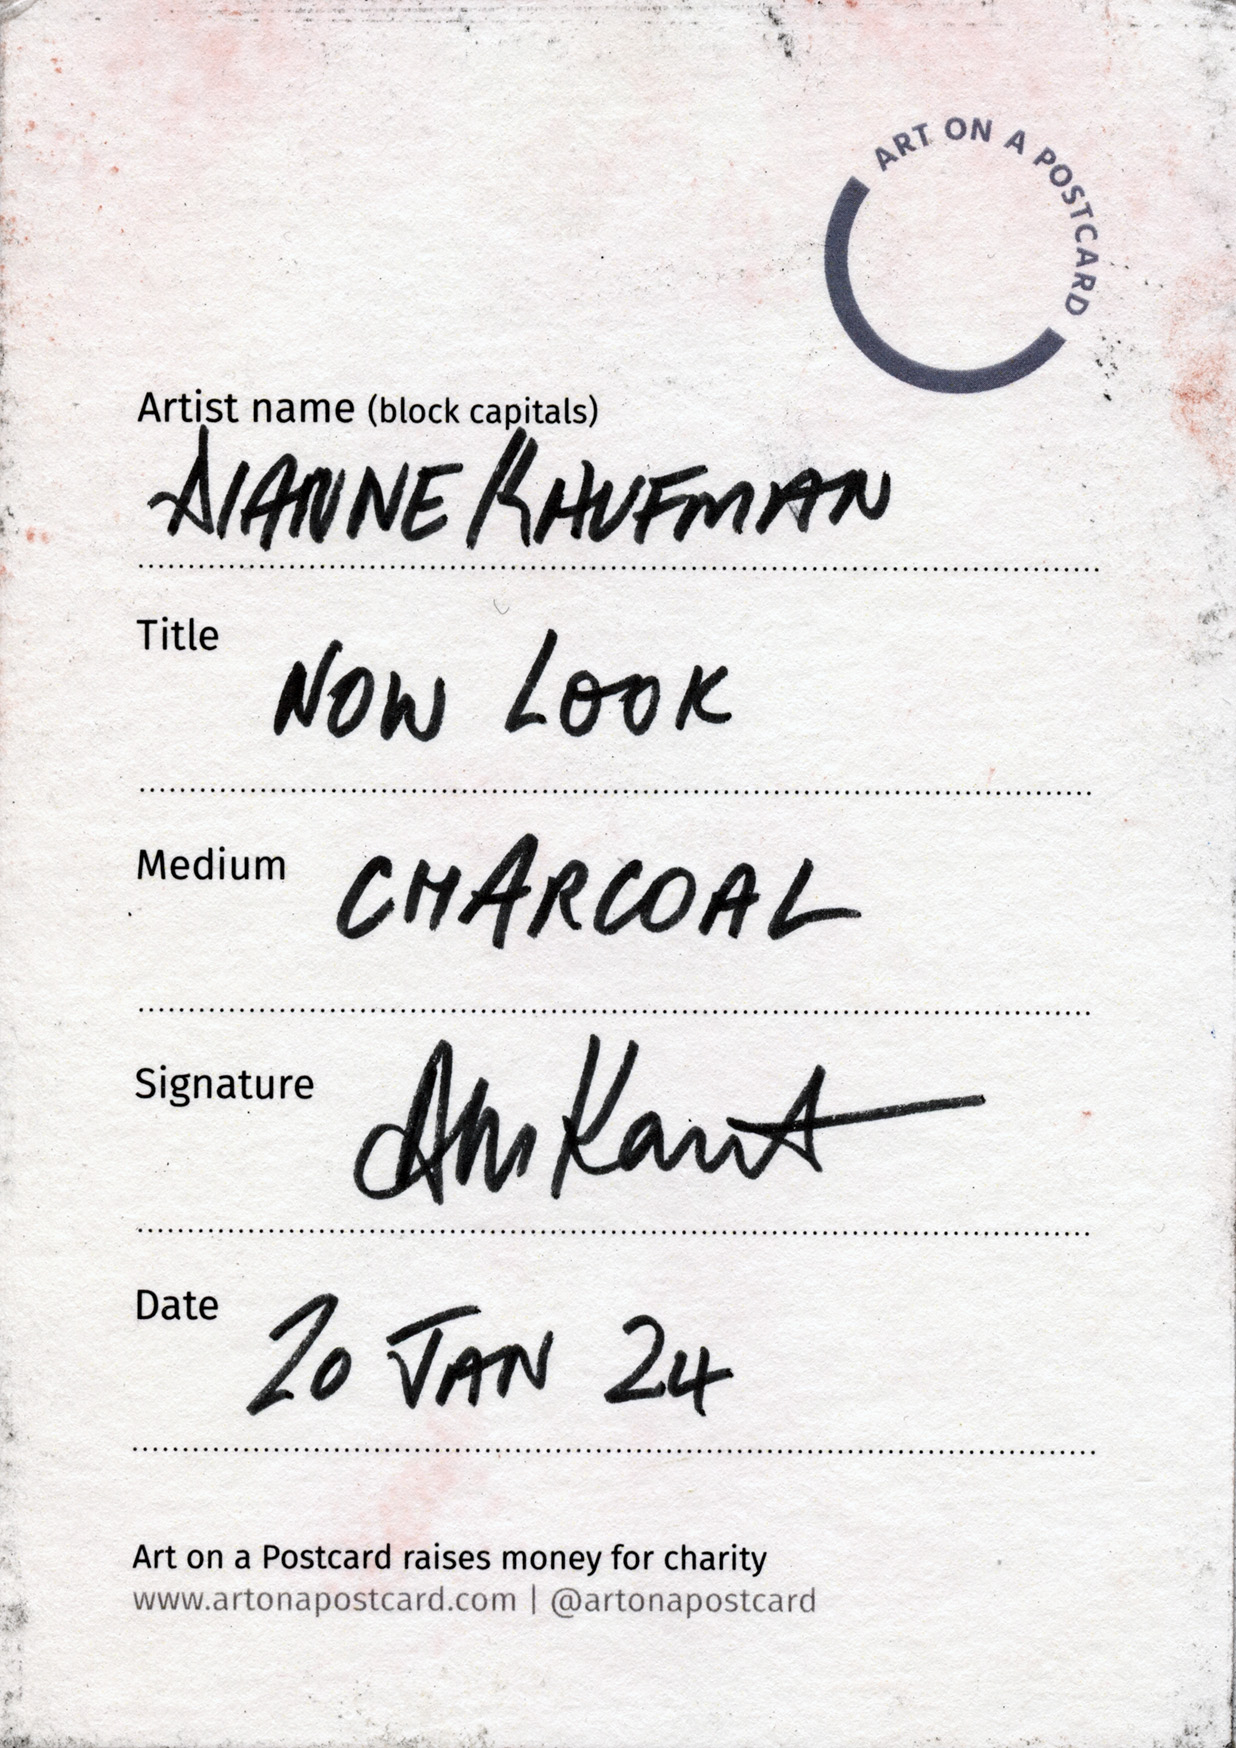 ART ON A POSTCARD
Artist name (block capitals)
DIANNE KAUFMAN
Title
NOW LOOK
Medium
CHARCOAL
Signature
Date
20 JAN 24
Art on a Postcard raises money for charity
www.artonapostcard.com | @artonapostcard